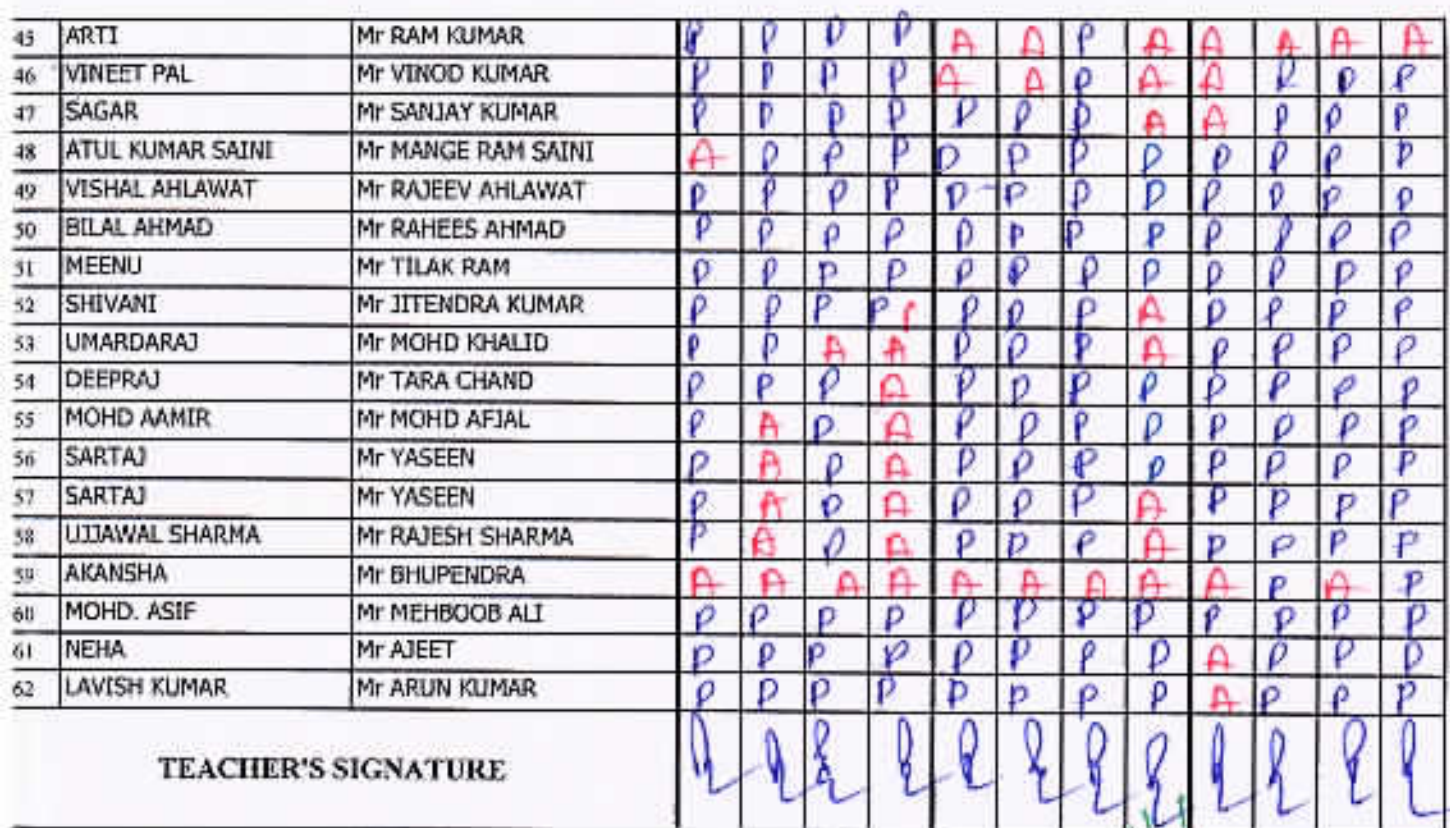 45 ARTI Mr RAM KUMAR P P P P A A P A A A A A
46 VINEET PAL Mr VINOD KUMAR P P P P A A P A A P P P
47 SAGAR Mr SANJAY KUMAR P P P P P P P A A P P P
48 ATUL KUMAR SAINI Mr MANGE RAM SAINI A P P P P P P P P P P P
49 VISHAL AHLAWAT Mr RAJEEV AHLAWAT P P P P P P P P P P P P
50 BILAL AHMAD Mr RAHEES AHMAD P P P P P P P P P P P P
51 MEENU Mr TILAK RAM P P P P P P P P P P P P
52 SHIVANI Mr JITENDRA KUMAR P P P P P P P A P P P P
53 UMARDARAJ Mr MOHD KHALID P P A A P P P A P P P P
54 DEEPRAJ Mr TARA CHAND P P P A P P P P P P P P
55 MOHD AAMIR Mr MOHD AFJAL P A P A P P P P P P P P
56 SARTAJ Mr YASEEN P A P A P P P P P P P P
57 SARTAJ Mr YASEEN P A P A P P P A P P P P
58 UJJAWAL SHARMA Mr RAJESH SHARMA P A P A P P P A P P P P
59 AKANSHA Mr BHUPENDRA A A A A A A A A A P A P
60 MOHD. ASIF Mr MEHBOOB ALI P P P P P P P P P P P P
61 NEHA Mr AJEET P P P P P P P P A P P P
62 LAVISH KUMAR Mr ARUN KUMAR P P P P P P P P A P P P
TEACHER'S SIGNATURE